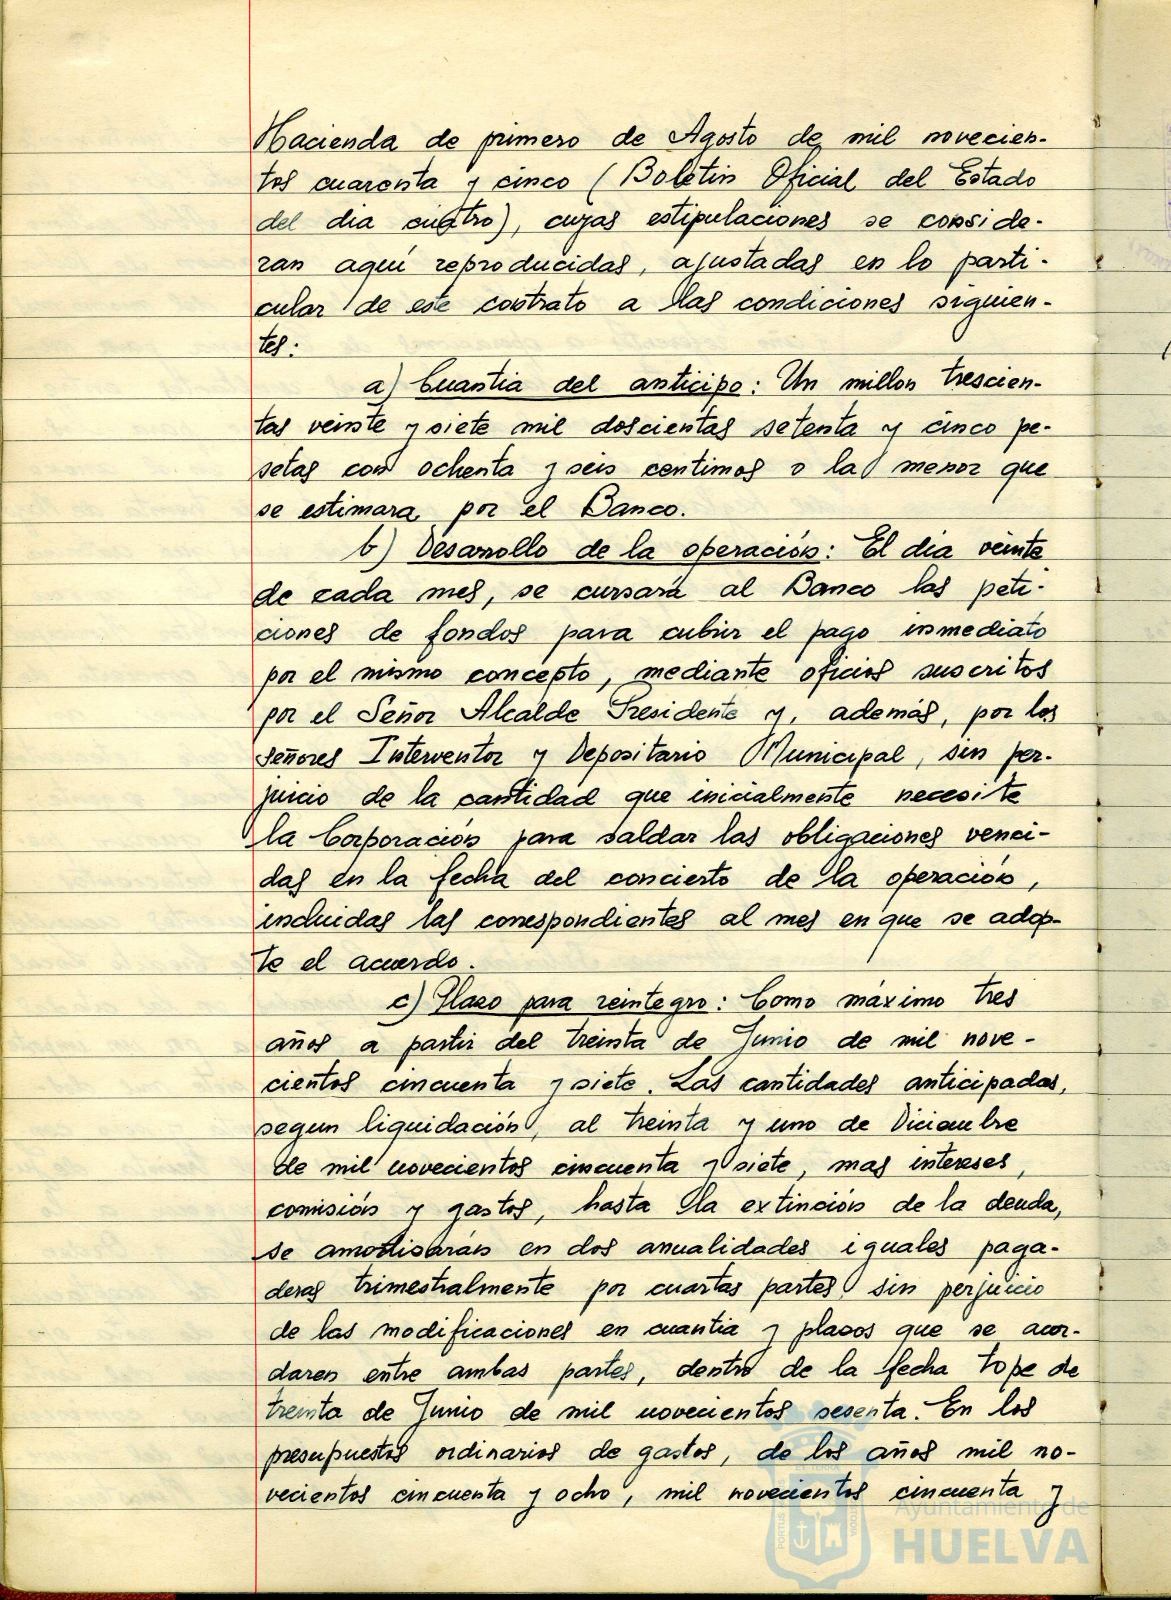 Hacienda de primero de Agosto de mil novecien-
tos cuarenta y cinco (Boletin Oficial del Estado
del dia cuatro), cuyas estipulaciones se conside-
ran aquí reproducidas, ajustadas en lo parti-
cular de este contrato a las condiciones siguien-
tes:
a) Cuantia del anticipo: Un millon trescien-
tas veinte y siete mil doscientas setenta y cinco pe-
setas con ochenta y seis centimos o la menor que
se estimara por el Banco.
b) Desarrollo de la operación: El dia veinte
de cada mes, se cursará al Banco las peti-
ciones de fondos para cubrir el pago inmediato
por el mismo concepto, mediante oficios suscritos
por el Señor Alcalde Presidente y, además, por los
señores Interventor y Depositario Municipal, sin per-
juicio de la cantidad que inicialmente necesite
la Corporación para saldar las obligaciones venci-
das en la fecha del concierto de la operación,
incluidas las correspondientes al mes en que se adop-
te el acuerdo.
c) Plazo para reintegro: Como máximo tres
años a partir del treinta de Junio de mil nove-
cientos cincuenta y siete. Las cantidades anticipadas,
segun liquidación, al treinta y uno de Diciembre
de mil novecientos cincuenta y siete, mas intereses,
comisión y gastos, hasta la extinción de la deuda,
se amortizarán en dos anualidades iguales paga-
deras trimestralmente por cuartas partes, sin perjuicio
de las modificaciones en cuantia y plazos que se acor-
daren entre ambas partes, dentro de la fecha tope de
treinta de Junio de mil novecientos sesenta. En los
presupuestos ordinarios de gastos, de los años mil no-
vecientos cincuenta y ocho, mil novecientos cincuenta y
Ayuntamiento de
HUELVA